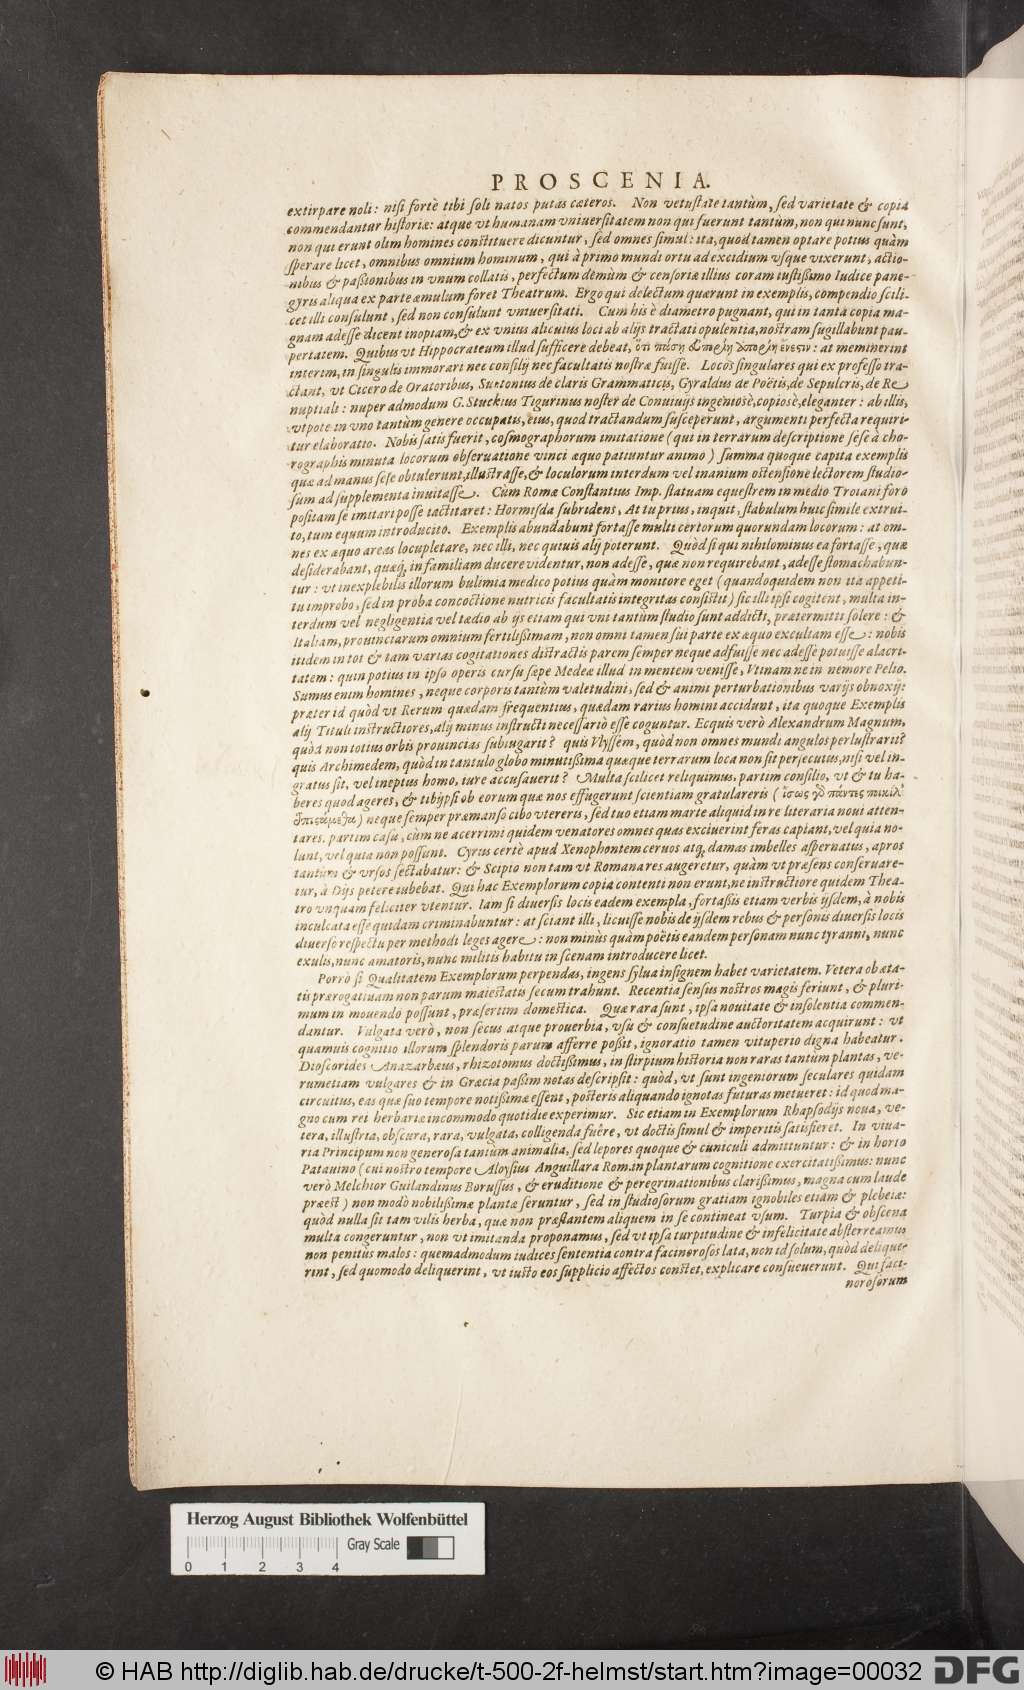 PROSCENIA.
extirpare noli: nisi fortè tibi soli natos putas cæteros. Non vetustate tantùm, sed varietate & copia
commendantur historiæ: atque vt humanam vniuersitatem non qui fuerunt tantùm, non qui nunc sunt,
non qui erunt olim homines constituere dicuntur, sed omnes simul: ita, quod tamen optare potius quàm
sperare licet, omnibus omnium hominum, qui à primo mundi ortu ad excidium vsque vixerunt, actio-
nibus & passionibus in vnum collatis, perfectum demùm & censoriæ illius coram iustissimo Iudice pane-
gyris aliqua ex parte æmulum foret Theatrum. Ergo qui delectum quærunt in exemplis, compendio scili-
cet illi consulunt, sed non consulunt vniuersitati. Cum his è diametro pugnant, qui in tanta copia ma-
gnam adesse dicent inopiam, & ex vnius alicuius loci ab alijs tractati opulentia, nostram sugillabunt pau-
pertatem. Quibus vt Hippocrateum illud sufficere debeat, ὅτι πάση : at meminerint
interim, in singulis immorari nec consilij nec facultatis nostræ fuisse. Locos singulares qui ex professo tra-
ctant, vt Cicero de Oratoribus, Suetonius de claris Grammaticis, Gyraldus de Poëtis, de Sepulcris, de Re
nuptiali: nuper admodum G. Stuckius Tigurinus noster de Conuiuijs ingeniosè, copiosè, eleganter: ab illis,
vtpote in vno tantùm genere occupatis, eius, quod tractandum susceperunt, argumenti perfecta requiri-
tur elaboratio. Nobis satis fuerit, cosmographorum imitatione (qui in terrarum descriptione sese à cho-
rographis minuta locorum obseruatione vinci æquo patiuntur animo) summa quoque capita exemplis
quæ ad manus sese obtulerunt, illustrasse, & loculorum interdum vel inanium ostensione lectorem studio-
sum ad supplementa inuitasse. Cùm Romæ Constantius Imp. statuam equestrem in medio Troiani foro
positam se imitari posse iactitaret: Hormisda subridens, At tu prius, inquit, stabulum huic simile extrui-
to, tum equum introducito. Exemplis abundabunt fortasse multi certorum quorundam locorum: at om-
nes ex æquo areas locupletare, nec illi, nec quiuis alij poterunt. Quòd si qui nihilominus ea fortasse, quæ
desiderabant, quæq́, in familiam ducere videntur, non adesse, quæ non requirebant, adesse stomachabun-
tur: vt inexplebilis illorum bulimia medico potius quàm monitore eget (quandoquidem non ita appeti-
tu improbo, sed in proba concoctione nutricis facultatis integritas consistit) sic illi ipsi cogitent, multa in-
terdum vel negligentia vel tædio ab ijs etiam qui vni tantùm studio sunt addicti, prætermitti solere: &
Italiam, prouinciarum omnium fertilissimam, non omni tamen sui parte ex æquo excultam esse: nobis
itidem in tot & tam varias cogitationes distractis parem semper neque adfuisse nec adesse potuisse alacri-
tatem: quin potius in ipso operis cursu sæpe Medeæ illud in mentem venisse, Vtinam ne in nemore Pelio.
Sumus enim homines, neque corporis tantùm valetudini, sed & animi perturbationibus varijs obnoxij:
præter id quòd vt Rerum quædam frequentius, quædam rarius homini accidunt, ita quoque Exemplis
alij Tituli instructiores, alij minus instructi necessariò esse coguntur. Ecquis verò Alexandrum Magnum,
quòd non totius orbis prouincias subiugarit? quis Vlyssem, quòd non omnes mundi angulos perlustrarit?
quis Archimedem, quòd in tantulo globo minutissima quæque terrarum loca non sit persecutus, nisi vel in-
gratus sit, vel ineptus homo, iure accusauerit? Multa scilicet reliquimus, partim consilio, vt & tu ha-
beres quod ageres, & tibijpsi ob eorum quæ nos effugerunt scientiam gratulareris (ἴσως πάντες
) neque semper præmanso cibo vtereris, sed tuo etiam marte aliquid in re literaria noui atten-
tares. partim casu, cùm ne acerrimi quidem venatores omnes quas exciuerint feras capiant, vel quia no-
lunt, vel quia non possunt. Cyrus certè apud Xenophontem ceruos atq́, damas imbelles aspernatus, apros
tantùm & vrsos sectabatur: & Scipio non tam vt Romana res augeretur, quàm vt præsens conseruare-
tur, à Dijs petere iubebat. Qui hac Exemplorum copia contenti non erunt, ne instructiore quidem Thea-
tro vnquam feliciter vtentur. Iam si diuersis locis eadem exempla, fortassis etiam verbis ijsdem, à nobis
inculcata esse quidam criminabuntur: at sciant illi, licuisse nobis de ijsdem rebus & personis diuersis locis
diuerso respectu per methodi leges agere: non minùs quàm poëtis eandem personam nunc tyranni, nunc
exulis, nunc amatoris, nunc militis habitu in scenam introducere licet.
Porrò si Qualitatem Exemplorum perpendas, ingens sylua insignem habet varietatem. Vetera ob æta-
tis prærogatiuam non parum maiestatis secum trahunt. Recentia sensus nostros magis feriunt, & pluri-
mum in mouendo possunt, præsertim domestica. Quæ rara sunt, ipsa nouitate & insolentia commen-
dantur. Vulgata verò, non secus atque prouerbia, vsu & consuetudine auctoritatem acquirunt: vt
quamuis cognitio illorum splendoris parum afferre possit, ignoratio tamen vituperio digna habeatur.
Dioscorides Anazarbæus, rhizotomus doctissimus, in stirpium historia non raras tantùm plantas, ve-
rumetiam vulgares & in Græcia passim notas descripsit: quòd, vt sunt ingeniorum seculares quidam
circuitus, eas quæ suo tempore notissimæ essent, posteris aliquando ignotas futuras metueret: id quod ma-
gno cum rei herbariæ incommodo quotidie experimur. Sic etiam in Exemplorum Rhapsodijs noua, ve-
tera, illustria, obscura, rara, vulgata, colligenda fuêre, vt doctis simul & imperitis satisfieret. In viua-
ria Principum non generosa tantùm animalia, sed lepores quoque & cuniculi admittuntur: & in horto
Patauino (cui nostro tempore Aloysius Anguillara Rom. in plantarum cognitione exercitatissimus: nunc
verò Melchior Guilandinus Borussus, & eruditione & peregrinationibus clarissimus, magna cum laude
præest) non modò nobilissimæ plantæ seruntur, sed in studiosorum gratiam ignobiles etiam & plebeiæ:
quòd nulla sit tam vilis herba, quæ non præstantem aliquem in se contineat vsum. Turpia & obscena
multa congeruntur, non vt imitanda proponamus, sed vt ipsa turpitudine & infelicitate absterreamus
non penitùs malos: quemadmodum iudices sententia contra facinorosos lata, non id solum, quòd delique-
rint, sed quomodo deliquerint, vt iusto eos supplicio affectos constet, explicare consueuerunt. Qui faci-
norosorum
Herzog August Bibliothek Wolfenbüttel
Gray Scale
0 1 2 3 4
© HAB http://diglib.hab.de/drucke/t-500-2f-helmst/start.htm?image=00032 DFG